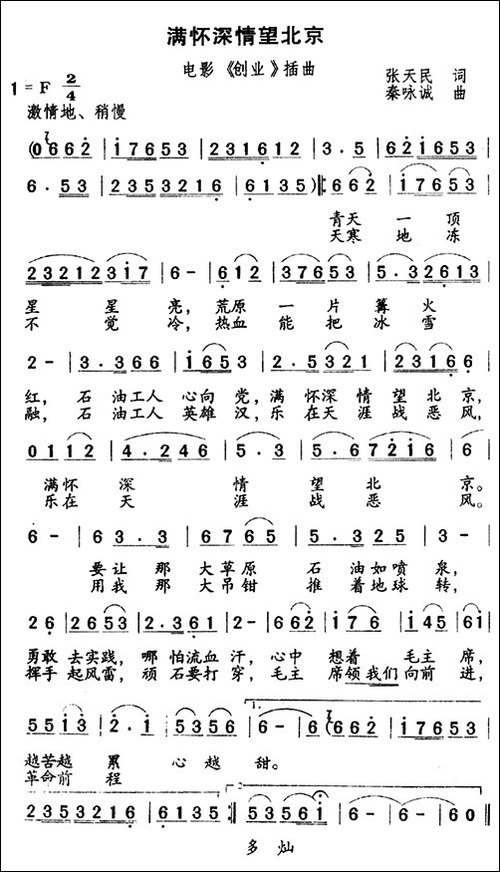 满怀深情望北京
电影《创业》插曲
张天民 词
1=F 2/4
秦咏诚 曲
激情地、稍慢
(0662 | 17653 | 231612 | 3.5 | 621653 |
6.53 | 2353216 | 6135) ‖: 662 | 17653 |
青天 一 顶
天寒 地 冻
23212317 | 6- | 6612 | 37653 | 5.32613 |
星 星 亮, 荒原 一 片 篝 火
不 觉 冷, 热血 能 把 冰 雪
2- | 3.366 | 1653 | 2.5321 | 23166 |
红, 石 油工人 心向 党, 满 怀深 情 望 北 京,
融, 石 油工人 英雄 汉, 乐 在天 涯 战 恶 风,
0112 | 4.246 | 5.3 | 5.67216 | 6
满怀 深 情 望 北 京。
乐在 天 涯 战 恶 风。
6- | 63.3 | 6765 | 5.325 | 3- |
要让 那 大草原 石 油如喷 泉,
用我 那 大吊钳 推 着地球 转,
26 | 2653 | 2.361 | 2- | 662 | 176 | 145 | 61 |
勇敢 去实践, 哪 怕流血 汗, 心中 想着 毛主 席,
挥手 起风雷, 顽 石要打 穿, 毛主 席领我们 向前 进,
5513 | 2.1 | 5356 | 6- | 6(662 | 17653 |
越苦越 累 心越 甜。
革命前 程
2353216 | 6135 :‖ 53561 | 6- | 6- | 60 ‖
多 灿